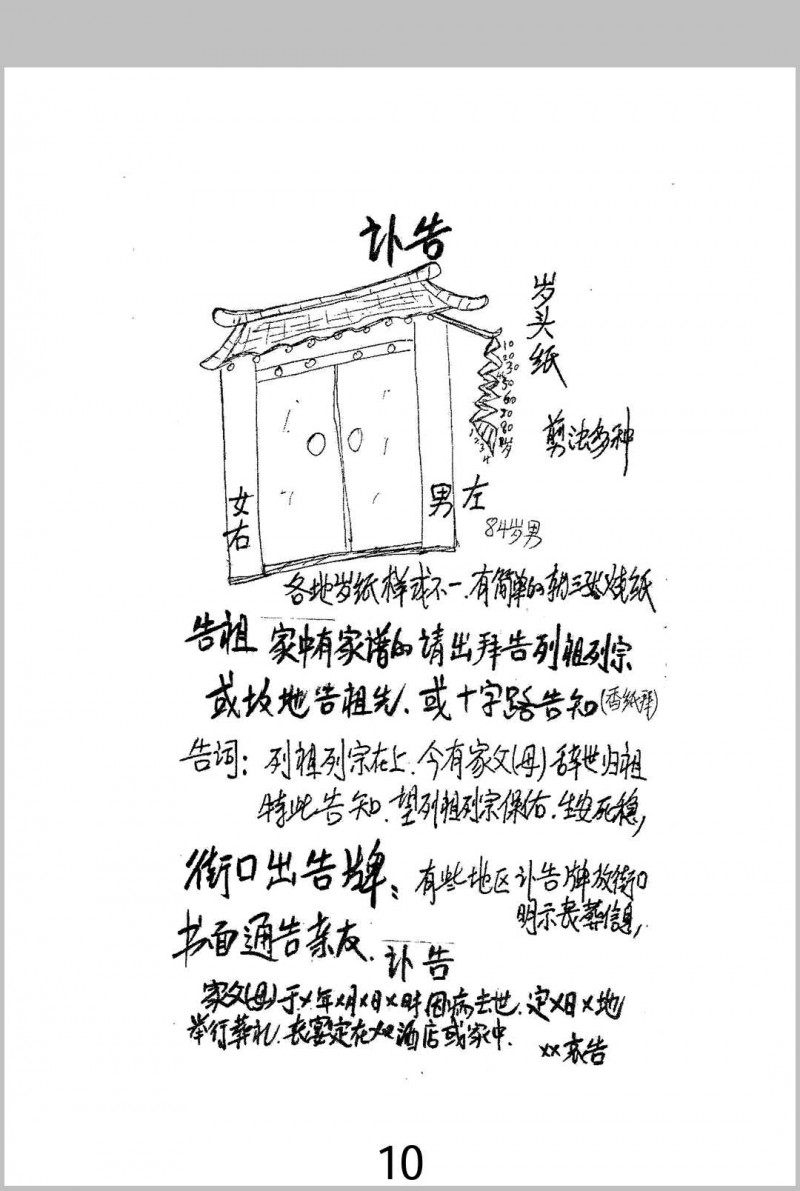 讣告
岁头纸
10
20
30
50
60
80
80
剪法多种
1
2
3
4
女右
男左
84岁男
各地岁纸样式不一.有简单的
烧纸
告祖 家中有家谱的请出拜告列祖列宗
或坟地告祖先、或十字路告知(香纸拜)
告词: 列祖列宗在上.今有家父(母)辞世归祖
特此告知.望列祖列宗保佑.生安死稳,
街口出告牌: 有些地区讣告牌放街口
明示丧葬信息,
书面通告亲友.
讣告
家父(母)于×年×月×日×时因病去世.定×日×地
举行葬礼.丧宴定在××酒店或家中.
××哀告
10